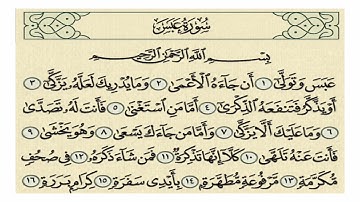 سُورَةُ عَبَسَ
بِسْمِ اللَّهِ الرَّحْمَٰنِ الرَّحِيمِ
عَبَسَ وَتَوَلَّىٰ ١ أَن جَاءَهُ الْأَعْمَىٰ ٢ وَمَا يُدْرِيكَ لَعَلَّهُ يَزَّكَّىٰ ٣
أَوْ يَذَّكَّرُ فَتَنفَعَهُ الذِّكْرَىٰ ٤ أَمَّا مَنِ اسْتَغْنَىٰ ٥ فَأَنتَ لَهُ تَصَدَّىٰ
٦ وَمَا عَلَيْكَ أَلَّا يَزَّكَّىٰ ٧ وَأَمَّا مَن جَاءَكَ يَسْعَىٰ ٨ وَهُوَ يَخْشَىٰ ٩
فَأَنتَ عَنْهُ تَلَهَّىٰ ١٠ كَلَّا إِنَّهَا تَذْكِرَةٌ ١١ فَمَن شَاءَ ذَكَرَهُ ١٢ فِي صُحُفٍ
مُّكَرَّمَةٍ ١٣ مَّرْفُوعَةٍ مُّطَهَّرَةٍ ١٤ بِأَيْدِي سَفَرَةٍ ١٥ كِرَامٍ بَرَرَةٍ ١٦